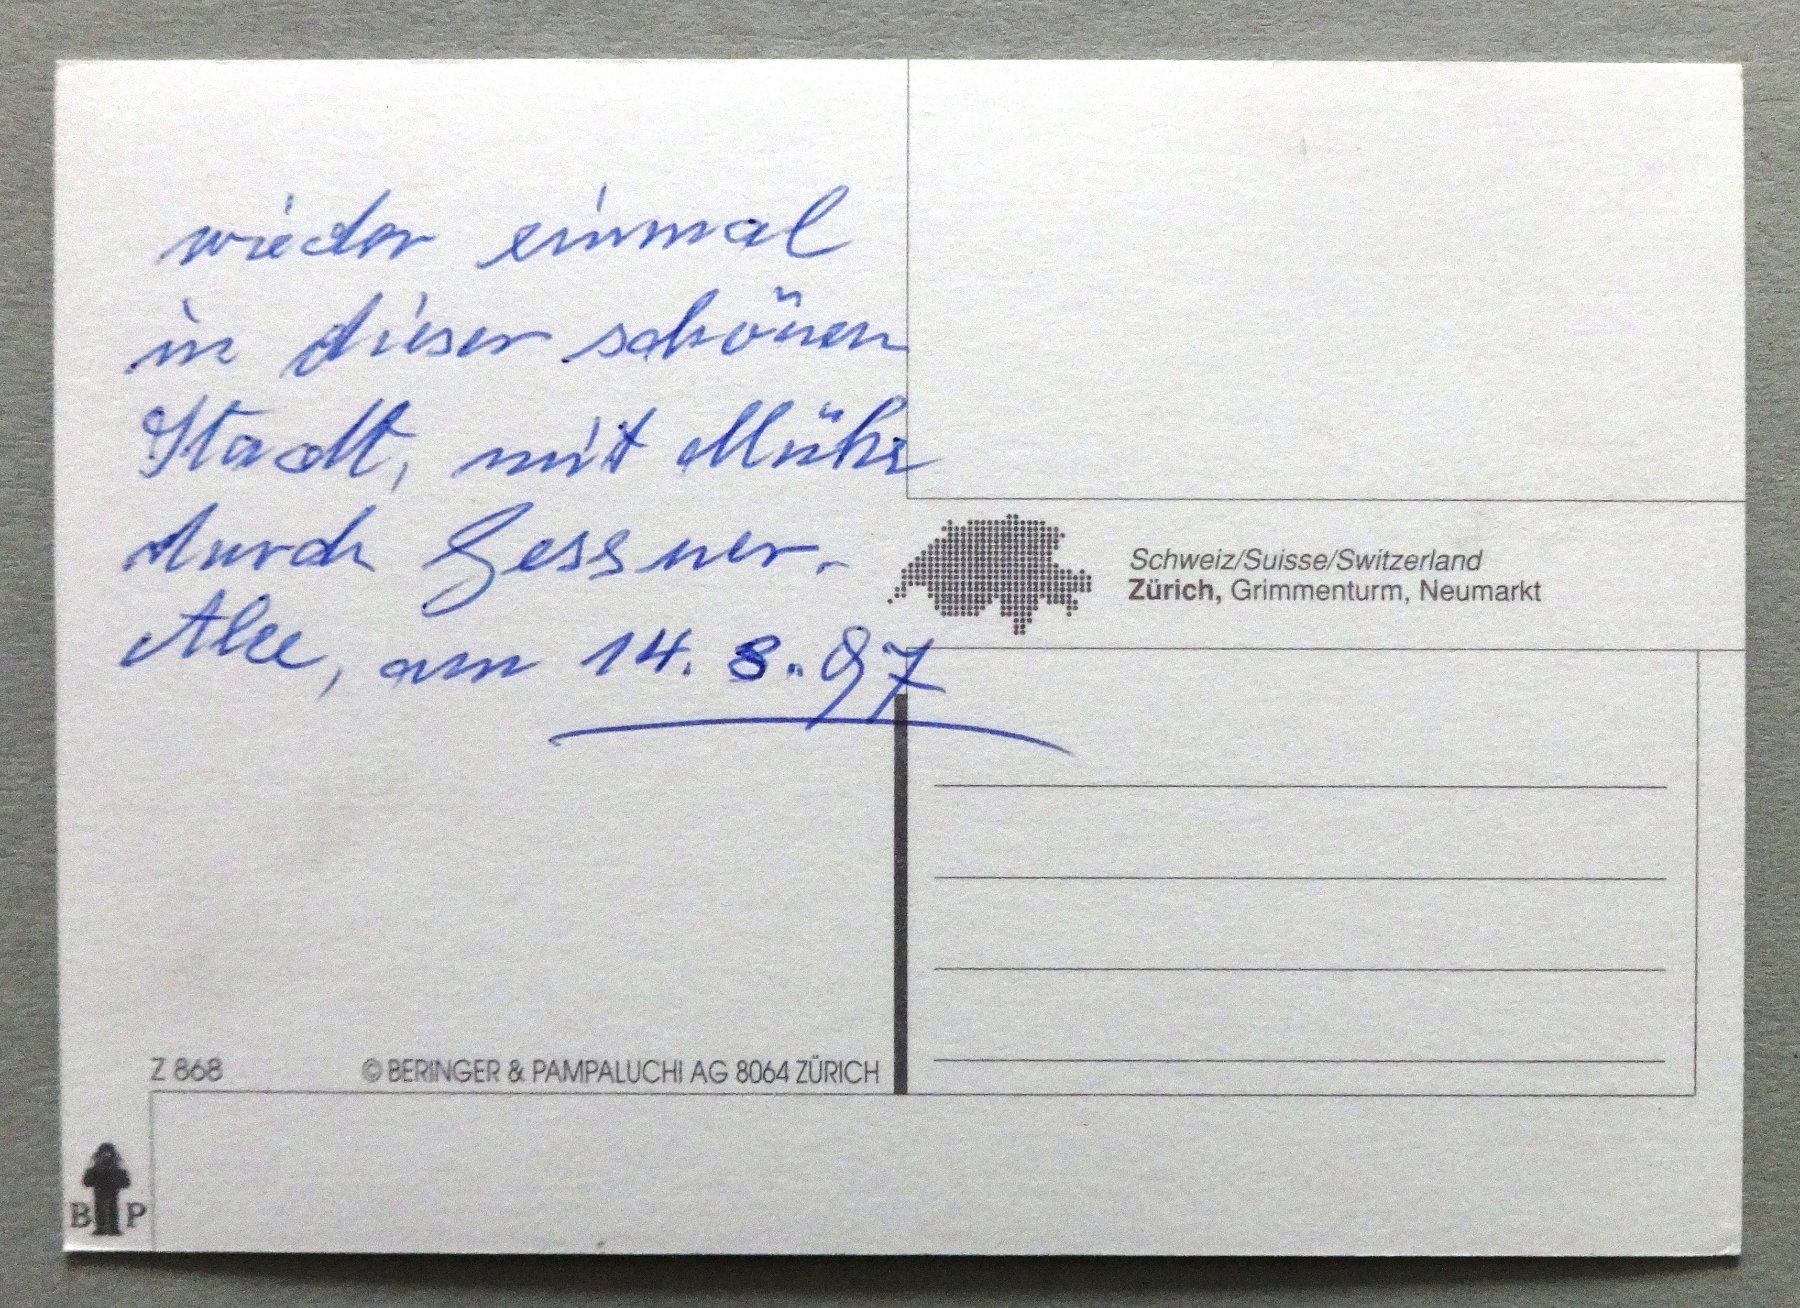 wieder einmal
in dieser schönen
Stadt, mit Mühe
durch Gessner-
Alee, am 14. 8. 97
Schweiz/Suisse/Switzerland
Zürich, Grimmenturm, Neumarkt
Z 868
© BERINGER & PAMPALUCHI AG 8064 ZÜRICH
B P